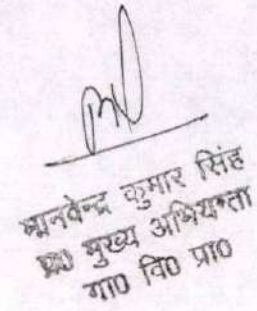 मानवेन्द्र कुमार सिंह
प्र0 मुख्य अभियन्ता
गा0 वि0 प्रा0